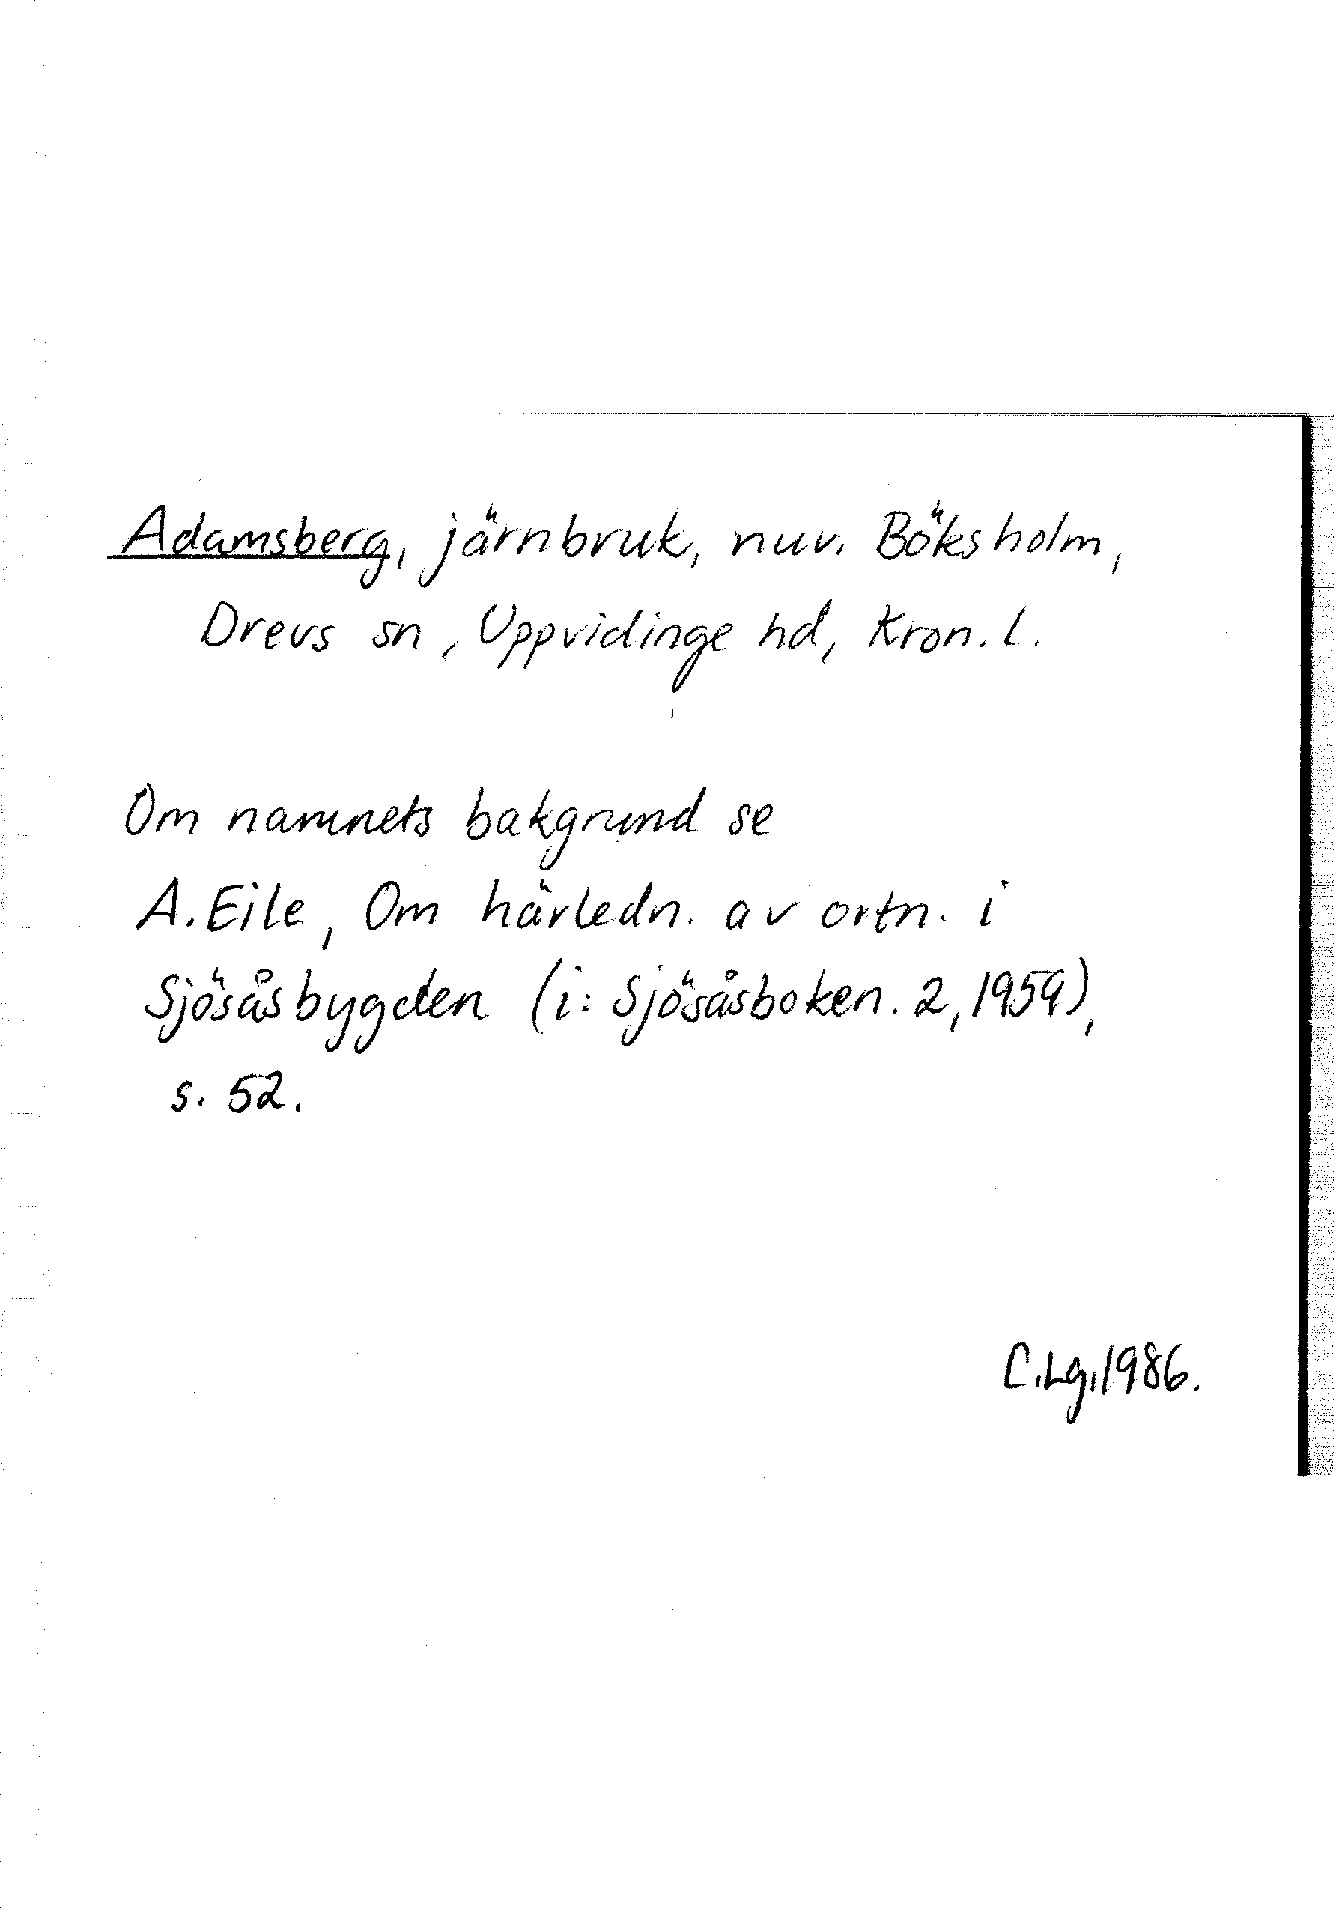 Adamsberg, järnbruk, nuv. Böksholm,
Drevs sn, Uppvidinge hd, Kron. l.
Om namnets bakgrund se
A. Eile, Om härledn. av ortn. i
Sjösåsbygden (i: Sjösåsboken. 2, 1959),
s. 52.
C. Lg, 1986.